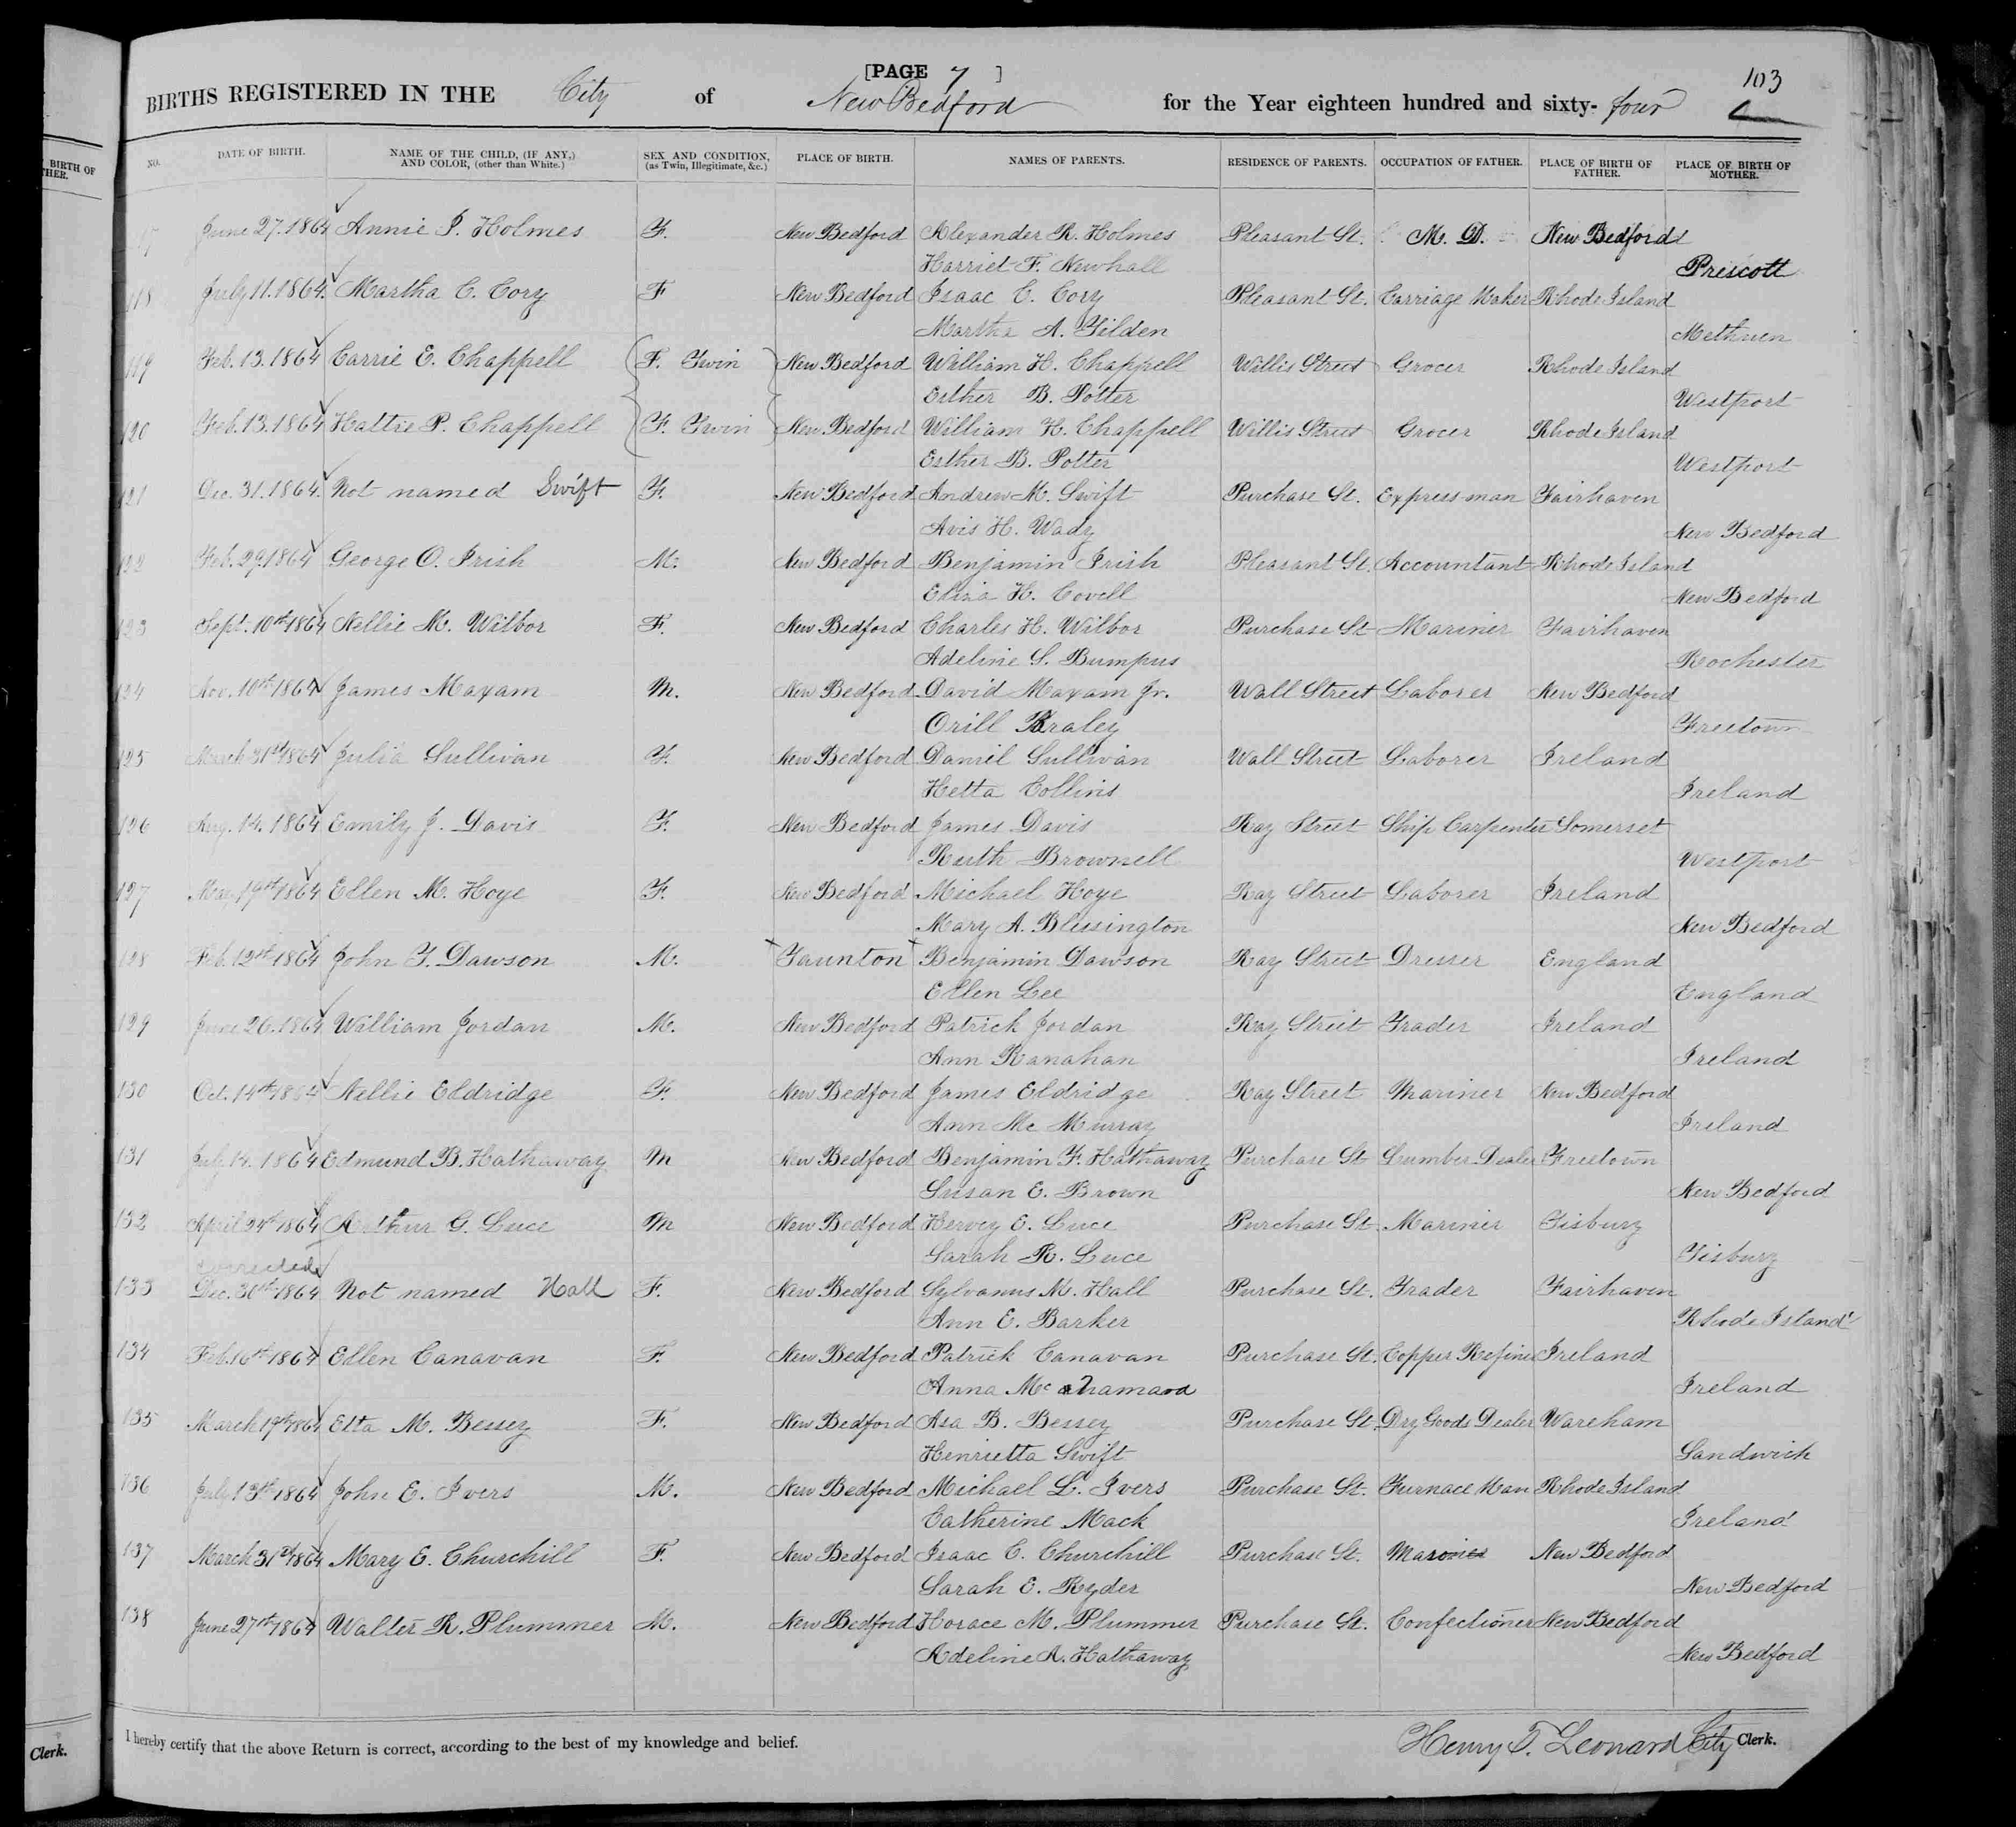 [PAGE 7]
103
BIRTHS REGISTERED IN THE City of New Bedford for the Year eighteen hundred and sixty-four
BIRTH OF
THER.
NO. DATE OF BIRTH. NAME OF THE CHILD, (IF ANY,) AND COLOR, (other than White.) SEX AND CONDITION, (as Twin, Illegitimate, &c.) PLACE OF BIRTH. NAMES OF PARENTS. RESIDENCE OF PARENTS. OCCUPATION OF FATHER. PLACE OF BIRTH OF FATHER. PLACE OF BIRTH OF MOTHER.
117 June 27. 1864 Annie P. Holmes F. New Bedford Alexander R. Holmes Pleasant St. M. D. New Bedford
Harriet F. Newhall Prescott
118 July 11. 1864. Martha C. Cory F New Bedford Isaac C. Cory Pleasant St. Carriage Maker Rhode Island
Martha A. Tilden Methuen
119 Feb. 13. 1864 Carrie E. Chappell F. Twin New Bedford William H. Chappell Willis Street Grocer Rhode Island
Esther B. Potter Westport
120 Feb. 13. 1864 Hattie P. Chappell F. Twin New Bedford William H. Chappell Willis Street Grocer Rhode Island
Esther B. Potter Westport
121 Dec. 31. 1864. Not named Swift F. New Bedford Andrew M. Swift Purchase St. Express-man Fairhaven
Avis H. Wady New Bedford
122 Feb. 29. 1864 George O. Irish M. New Bedford Benjamin Irish Pleasant St. Accountant Rhode Island
Eliza H. Covell New Bedford
123 Sept. 10th 1864 Nellie M. Wilbor F. New Bedford Charles H. Wilbor Purchase St Mariner Fairhaven
Adeline S. Bumpus Rochester
124 Nov. 10th 1864 James Maxam M. New Bedford David Maxam Jr. Wall Street Laborer New Bedford
Orill Braley Freetown
125 March 31st 1864 Julia Sullivan F. New Bedford Daniel Sullivan Wall Street Laborer Ireland
Hetta Collins Ireland
126 Aug. 14. 1864 Emily J. Davis F. New Bedford James Davis Ray Street Ship Carpenter Somerset
Ruth Brownell Westport
127 May 19th 1864 Ellen M. Hoye F. New Bedford Michael Hoye Ray Street Laborer Ireland
Mary A. Blessington New Bedford
128 Feb. 12th 1864 John T. Dawson M. Taunton Benjamin Dawson Ray Street Dresser England
Ellen Lee England
129 June 26. 1864 William Jordan M. New Bedford Patrick Jordan Ray Street Trader Ireland
Ann Ranahan Ireland
130 Oct. 14th 1864 Nellie Eldridge F. New Bedford James Eldridge Ray Street Mariner New Bedford
Ann Mc Murray Ireland
131 July 14. 1864 Edmund B. Hathaway M New Bedford Benjamin F. Hathaway Purchase St Lumber Dealer Freetown
Susan E. Brown New Bedford
132 April 24th 1864 Arthur G. Luce M New Bedford Hervey E. Luce Purchase St Mariner Tisbury
Sarah R. Luce Tisbury
corrected
133 Dec. 30th 1864 Not named Hall F. New Bedford Sylvanus M. Hall Purchase St. Trader Fairhaven
Ann E. Barker Rhode Island
134 Feb. 16th 1864 Ellen Canavan F. New Bedford Patrick Canavan Purchase St. Copper Refiner Ireland
Anna Mc Ireland
135 March 19th 1864 Etta M. Bessey F. New Bedford Asa B. Bessey Purchase St. Dry Goods Dealer Wareham
Henrietta Swift Sandwich
136 July 13th 1864 John E. Ivers M. New Bedford Michael L. Ivers Purchase St. Furnace Man Rhode Island
Catherine Mack Ireland
137 March 31st 1864 Mary E. Churchill F. New Bedford Isaac C. Churchill Purchase St. New Bedford
Sarah E. Ryder New Bedford
138 June 27th 1864 Walter R. Plummer M. New Bedford Horace M. Plummer Purchase St. Confectioner New Bedford
Adeline A. Hathaway New Bedford
I hereby certify that the above Return is correct, according to the best of my knowledge and belief.
Henry T. Leonard City Clerk.
Clerk.